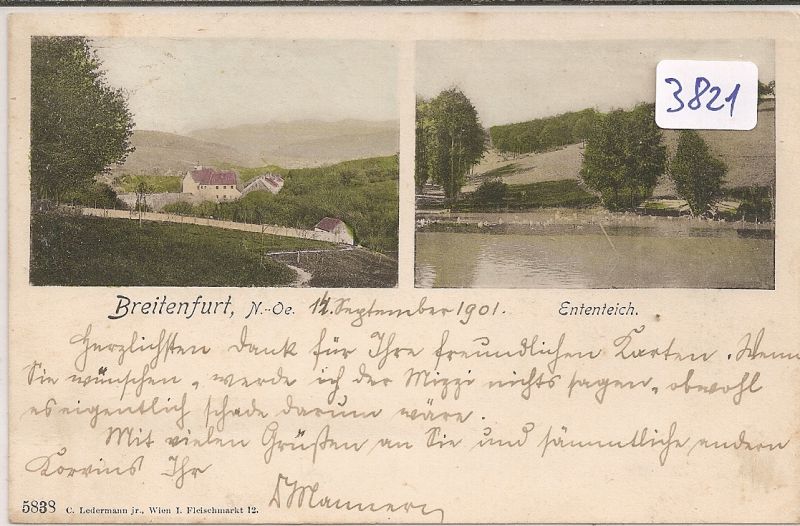 3821
Breitenfurt, N.-Oe. 14. September 1901. Ententeich.
Herzlichsten Dank für Ihre freundlichen Karten. Wenn
Sie wünschen, werde ich der Mizzi nichts sagen, obwohl
es eigentlich schade darum wäre.
Mit vielen Grüßen an Sie und sämmtliche andern
Korvins Ihr
5838 C. Ledermann jr., Wien I. Fleischmarkt 12.